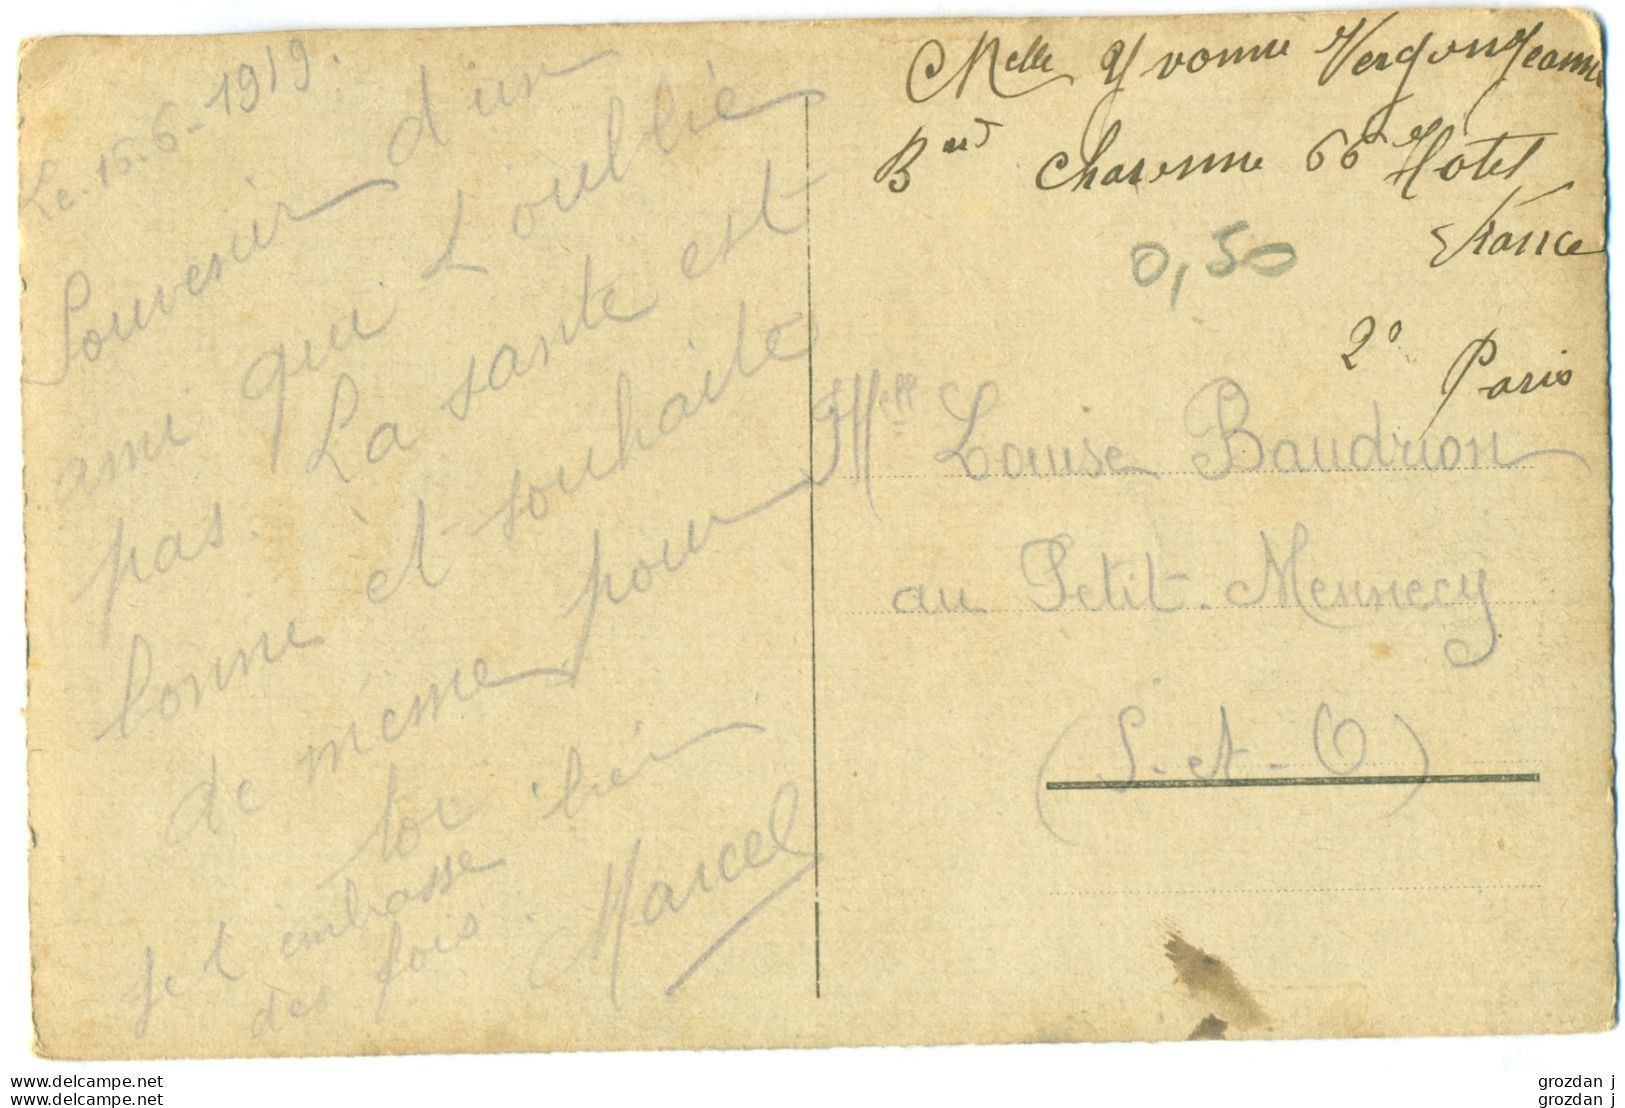 Le. 16-6-1919.
Souvenir d'un
ami qui L'oublie
pas. La santé est
bonne et souhaite
de même pour
toi bien
Je t'embrasse
des fois. Marcel
Melle Yvonne
Bard Charenne 66 Hotel
France
0,50
2º Paris
Melle Louise Baudrion
au Petit-Mennecy
(S-et-O)
www.delcampe.net
www.delcampe.net
grozdan j
grozdan j